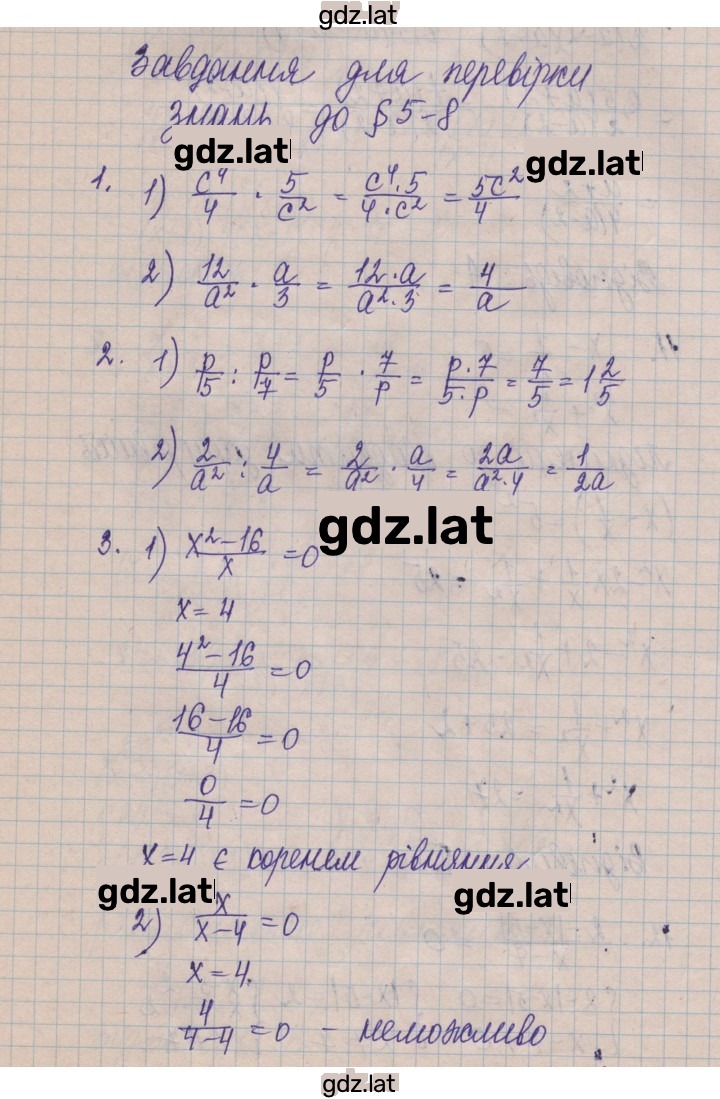 gdz.lat
Завдання для перевірки
знань до § 5-8
gdz.lat gdz.lat
1. 1) c⁴/4 · 5/c² = c⁴·5/4·c² = 5c²/4
2) 12/a² · a/3 = 12·a/a²·3 = 4/a
2. 1) p/5 : p/7 = p/5 · 7/p = p·7/5·p = 7/5 = 1 2/5
2) 2/a² : 4/a = 2/a² · a/4 = 2a/a²·4 = 1/2a
gdz.lat
3. 1) x²-16/x = 0
x = 4
4²-16/4 = 0
16-16/4 = 0
0/4 = 0
x=4 є коренем рівняння
gdz.lat gdz.lat
2) x/x-4 = 0
x = 4.
4/4-4 = 0 - неможливо
gdz.lat